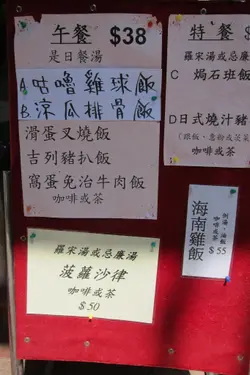 午餐 $38
是日餐湯
A咕嚕雞球飯
B涼瓜排骨飯
滑蛋叉燒飯
吉列豬扒飯
窩蛋免治牛肉飯
咖啡或茶
特餐
羅宋湯或忌廉
C 焗石班飯
D日式燒汁豬
咖啡或茶
海南雞飯
例湯、油飯
咖啡或茶
$55
羅宋湯或忌廉湯
菠蘿沙律
咖啡或茶
$50